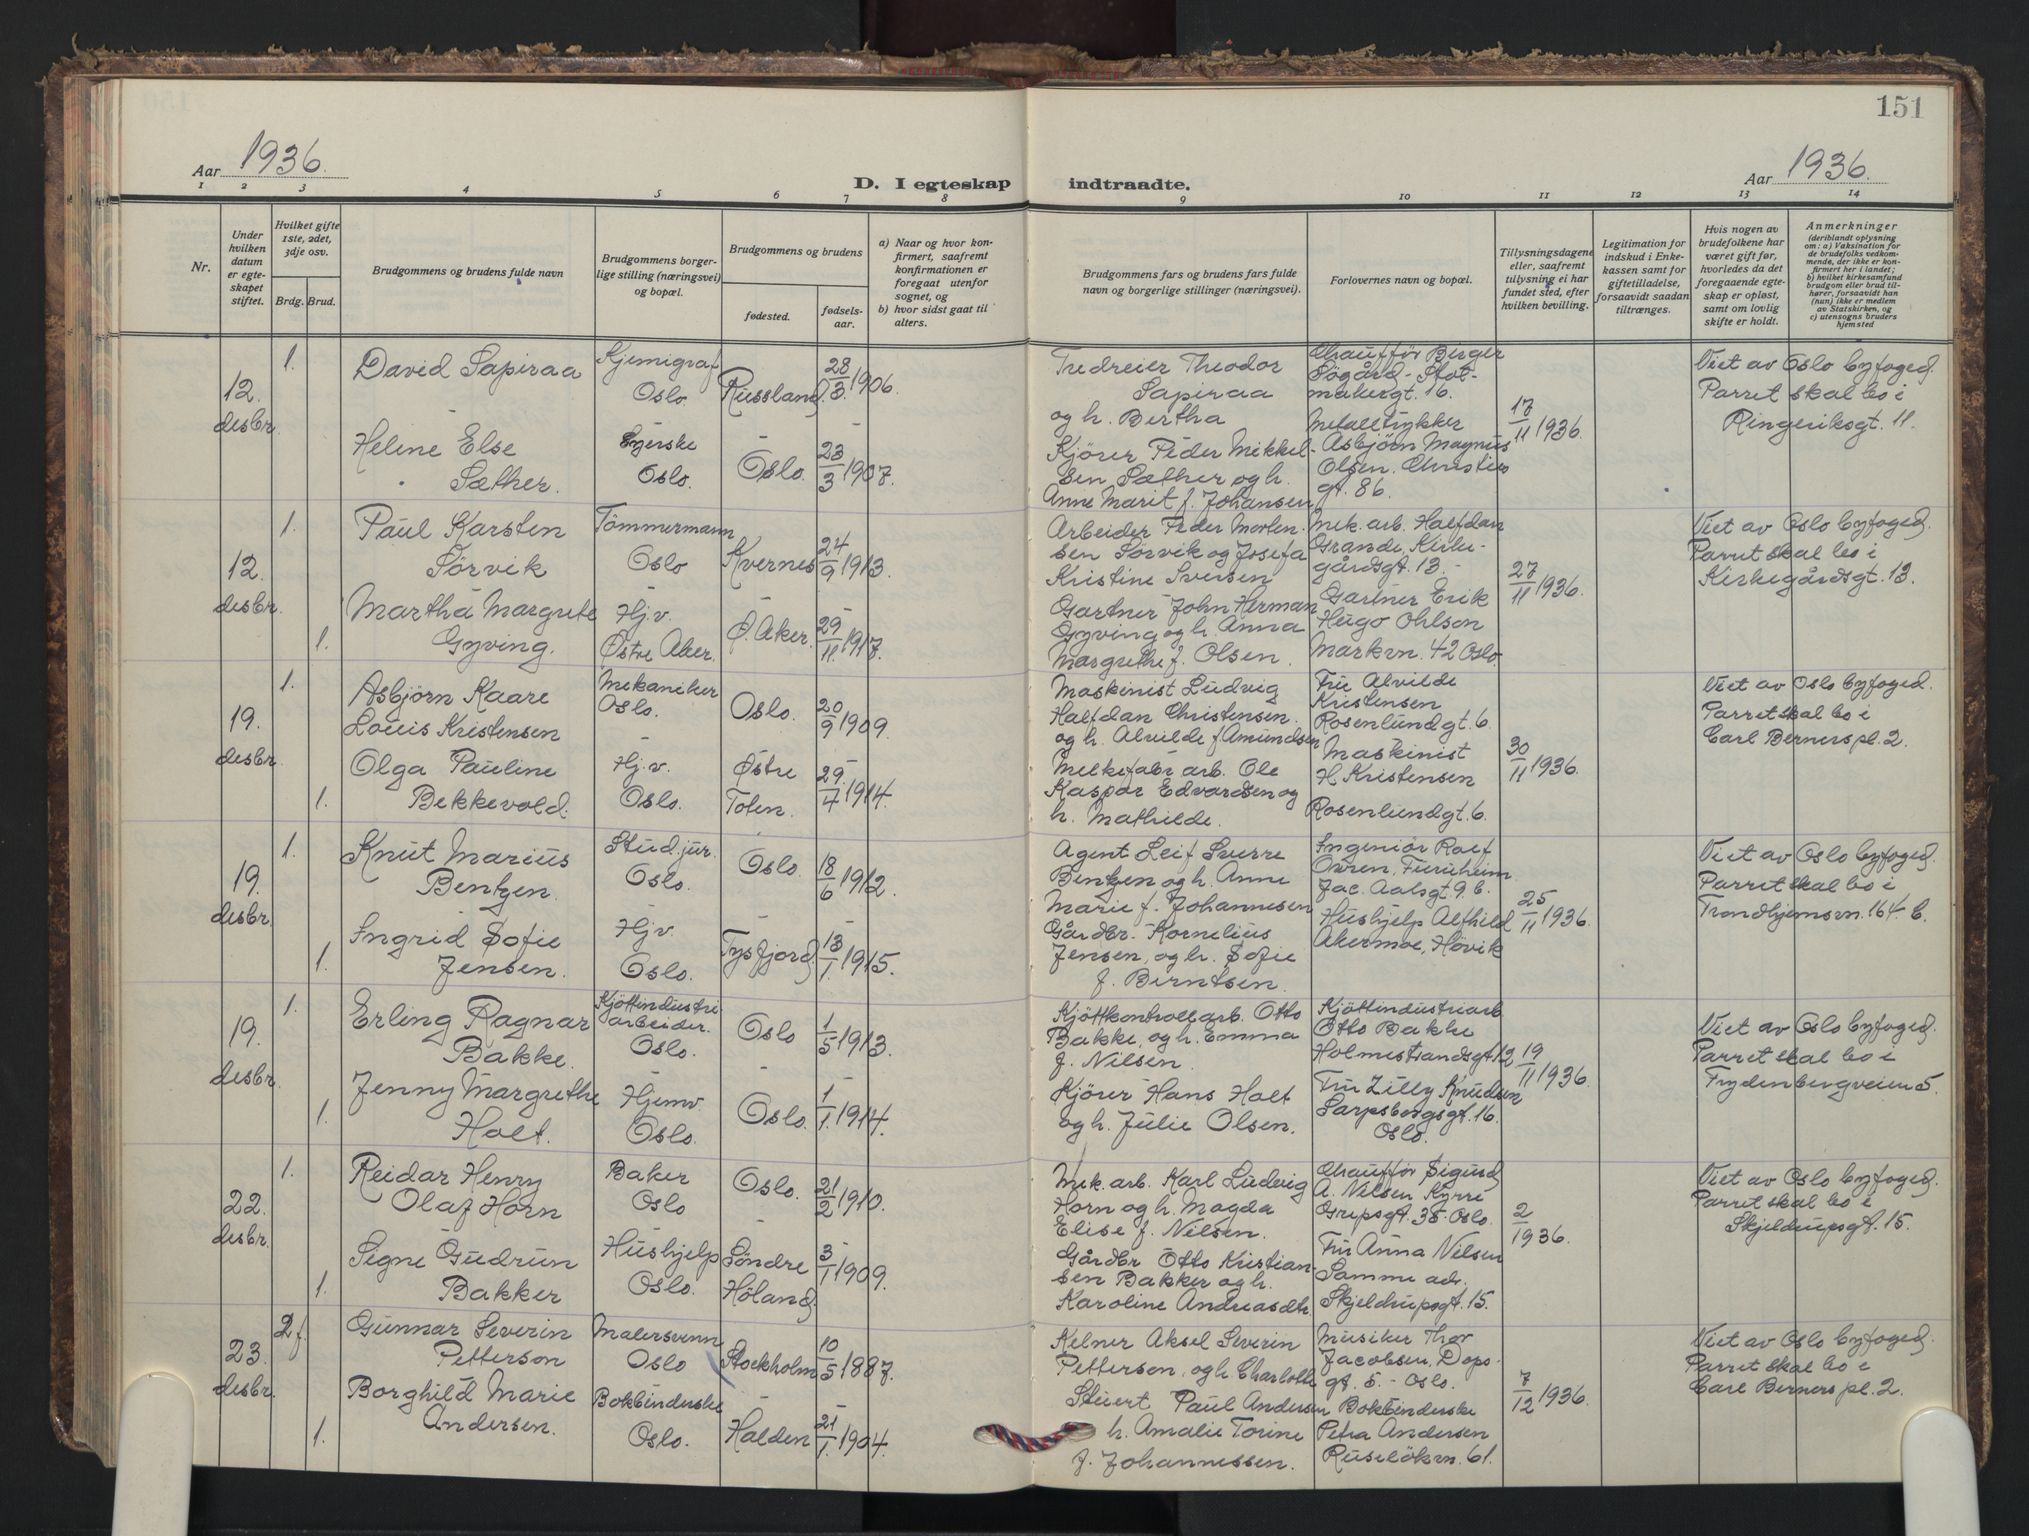 151
Aar 1936.
D. I egteskap indtraadte.
Aar 1936.
1 2 3 4 5 6 7 8 9 10 11 12 13 14
Nr.
Under hvilken datum er egteskapet stiftet.
Hvilket gifte 1ste, 2det, 3dje osv.
Brdg. Brud.
Brudgommens og brudens fulde navn
Brudgommens borgerlige stilling (næringsvei) og bopæl.
Brudgommens og brudens
fødested.
fødselsaar.
a) Naar og hvor konfirmert, saafremt konfirmationen er foregaat utenfor sognet, og
b) hvor sidst gaat til alters.
Brudgommens fars og brudens fars fulde navn og borgerlige stillinger (næringsvei).
Forlovernes navn og bopæl.
Tillysningsdagene eller, saafremt tillysning ei har fundet sted, efter hvilken bevilling.
Legitimation for indskud i Enkekassen samt for giftetilladelse, forsaavidt saadan tiltrænges.
Hvis nogen av brudefolkene har været gift før, hvorledes da det foregaaende egteskap er opløst, samt om lovlig skifte er holdt.
Anmerkninger
(deriblandt oplysning om: a) Vaksination for de brudefolks vedkommende, der ikke er konfirmert her i landet; b) hvilket kirkesamfund brudgom eller brud tilhører, forsaavidt han (nun) ikke er medlem av Statskirken, og c) utensogns bruders hjemsted
12. desbr.
1.
David Sapiraa
Kjemigraf
Oslo
Russland
28/3 1906.
Tredreier Theodor
Sapiraa
og h. Bertha
Chauffør Birger
Søgård - Skomakergt. 16.
Metalltrykker
17/11 1936.
Viet av Oslo byfoged.
Parret skal bo i
Ringeriksgt. 11.
Helene Else
Sæther.
Syerske
Oslo.
Oslo.
23/3 1907.
Kjører Peder Mikkelsen Sæther og h.
Anne Marit f. Johansen
Asbjørn Magnus
Olsen. Christies
gt. 86.
12. desbr.
1.
Paul Karsten
Sørvik
Tømmermann
Oslo
Kvernes
24/9 1913.
Arbeider Peder Mortensen Sørvik og Josefa
Kristine Iversen
Mek. arb. Halfdan
Grande, Kirkegårdsgt. 13.
27/11 1936.
Viet av Oslo byfoged.
Parret skal bo i
Kirkegårdsgt. 13.
1.
Martha Margrete
Gyving.
Hj.v.
Østre Aker.
Ø. Aker.
29/11. 1917.
Gartner John Herman
Gyving og h. Anna
Margrethe f. Olsen.
Gartner Erik
Hugo Ohlson
Markvn. 42 Oslo.
19. desbr.
1.
Asbjørn Kaare
Louis Kristensen
Mekaniker
Oslo.
Oslo.
20/9 1909.
Maskinist Ludvig
Halfdan Christensen.
og h. Alvilde f Amundsen
Fru Alvilde
Kristensen
Rosenlundgt. 6
30/11 1936.
Viet av Oslo byfoged.
Parret skal bo i
Carl Berners pl. 2.
1.
Olga Pauline
Bekkevold.
Hj.v.
Oslo.
Østre
Toten.
29/4 1914.
Melkefabr arb. Ole
Kaspar Edvardsen og
h. Mathilde.
Maskinist
H. Kristensen
Rosenlundgt. 6.
19. desbr.
1.
Knut Marius
Bentzen.
Stud. jur.
Oslo.
Oslo.
18/6 1912.
Agent Leif Sverre
Bentzen og h. Anne
Marie f. Johannesen
Ingeniør Rolf
Owren, Furuheim
Jac. Aalsgt. 9 b.
25/11 1936.
Viet av Oslo byfoged.
Parret skal bo i
Trondhjemsvn. 164 b.
1.
Ingrid Sofie
Jensen.
Hjv.
Oslo.
Tysfjord.
13/1. 1915.
Gårdbr. Kornelius
Jensen, og h. Sofie
f. Berntsen.
Hushjelp Alfhild
Akermoe, Høvik
19. desbr.
1.
Erling Ragnar
Bakke.
Kjøttindustri
arbeider.
Oslo.
Oslo
1/5 1913.
Kjøttkontrollarb. Otto
Bakke, og h. Emma
f. Nilsen.
Kjøttindustriarb
Otto Bakke
Holmestrandsgt. 12
19/11 1936.
Viet av Oslo byfoged.
Parret skal bo i
Frydenbergveien 5.
1.
Jenny Margrethe
Holt.
Hjemv.
Oslo.
Oslo.
1/1. 1914.
Kjører Hans Holt
og h. Julie Olsen.
Fru Lilly Knudsen
Sarpsborgsgt. 16.
Oslo.
22. desbr.
1.
Reidar Henry
Olaf Horn
Baker
Oslo
Oslo.
21/2 1910.
Mek. arb. Karl Ludvig
Horn og h. Magda
Elise f. Nilsen.
Chauffør Sigurd
A. Nilsen Kyrre
Grepsgt. 35. Oslo.
2/
1936.
Viet av Oslo byfoged.
Parret skal bo i
Skjeldrupsgt. 15.
1.
Signe Gudrun
Bakker
Hushjelp
Oslo.
Søndre
Høland.
3/1 1909.
Gårdbr Otto Kristiansen Bakker og h.
Karoline Andreasdtr.
Fru Anna Nilsen
Samme adr.
Skjeldrupsgt. 15.
23. desbr.
2 f.
Gunnar Severin
Petterson
Malersvenn
Oslo
Stockholm
10/5 1887.
Kelner Aksel Severin
Petterson, og h. Charlotte
Stuert
Musiker Thor
Jacobsen, Dopsgt. 5. - Oslo.
7/12 1936.
Viet av Oslo byfoged.
Parret skal bo i
Carl Berners pl. 2.
1.
Borghild Marie
Andersen.
Bokbinderske
Oslo.
Halden
21/1. 1904.
Paul Andersen
h. Amalie Torine
f. Johannessen.
Bokbinderske
Petra Andersen
Ruseløkvn. 61.